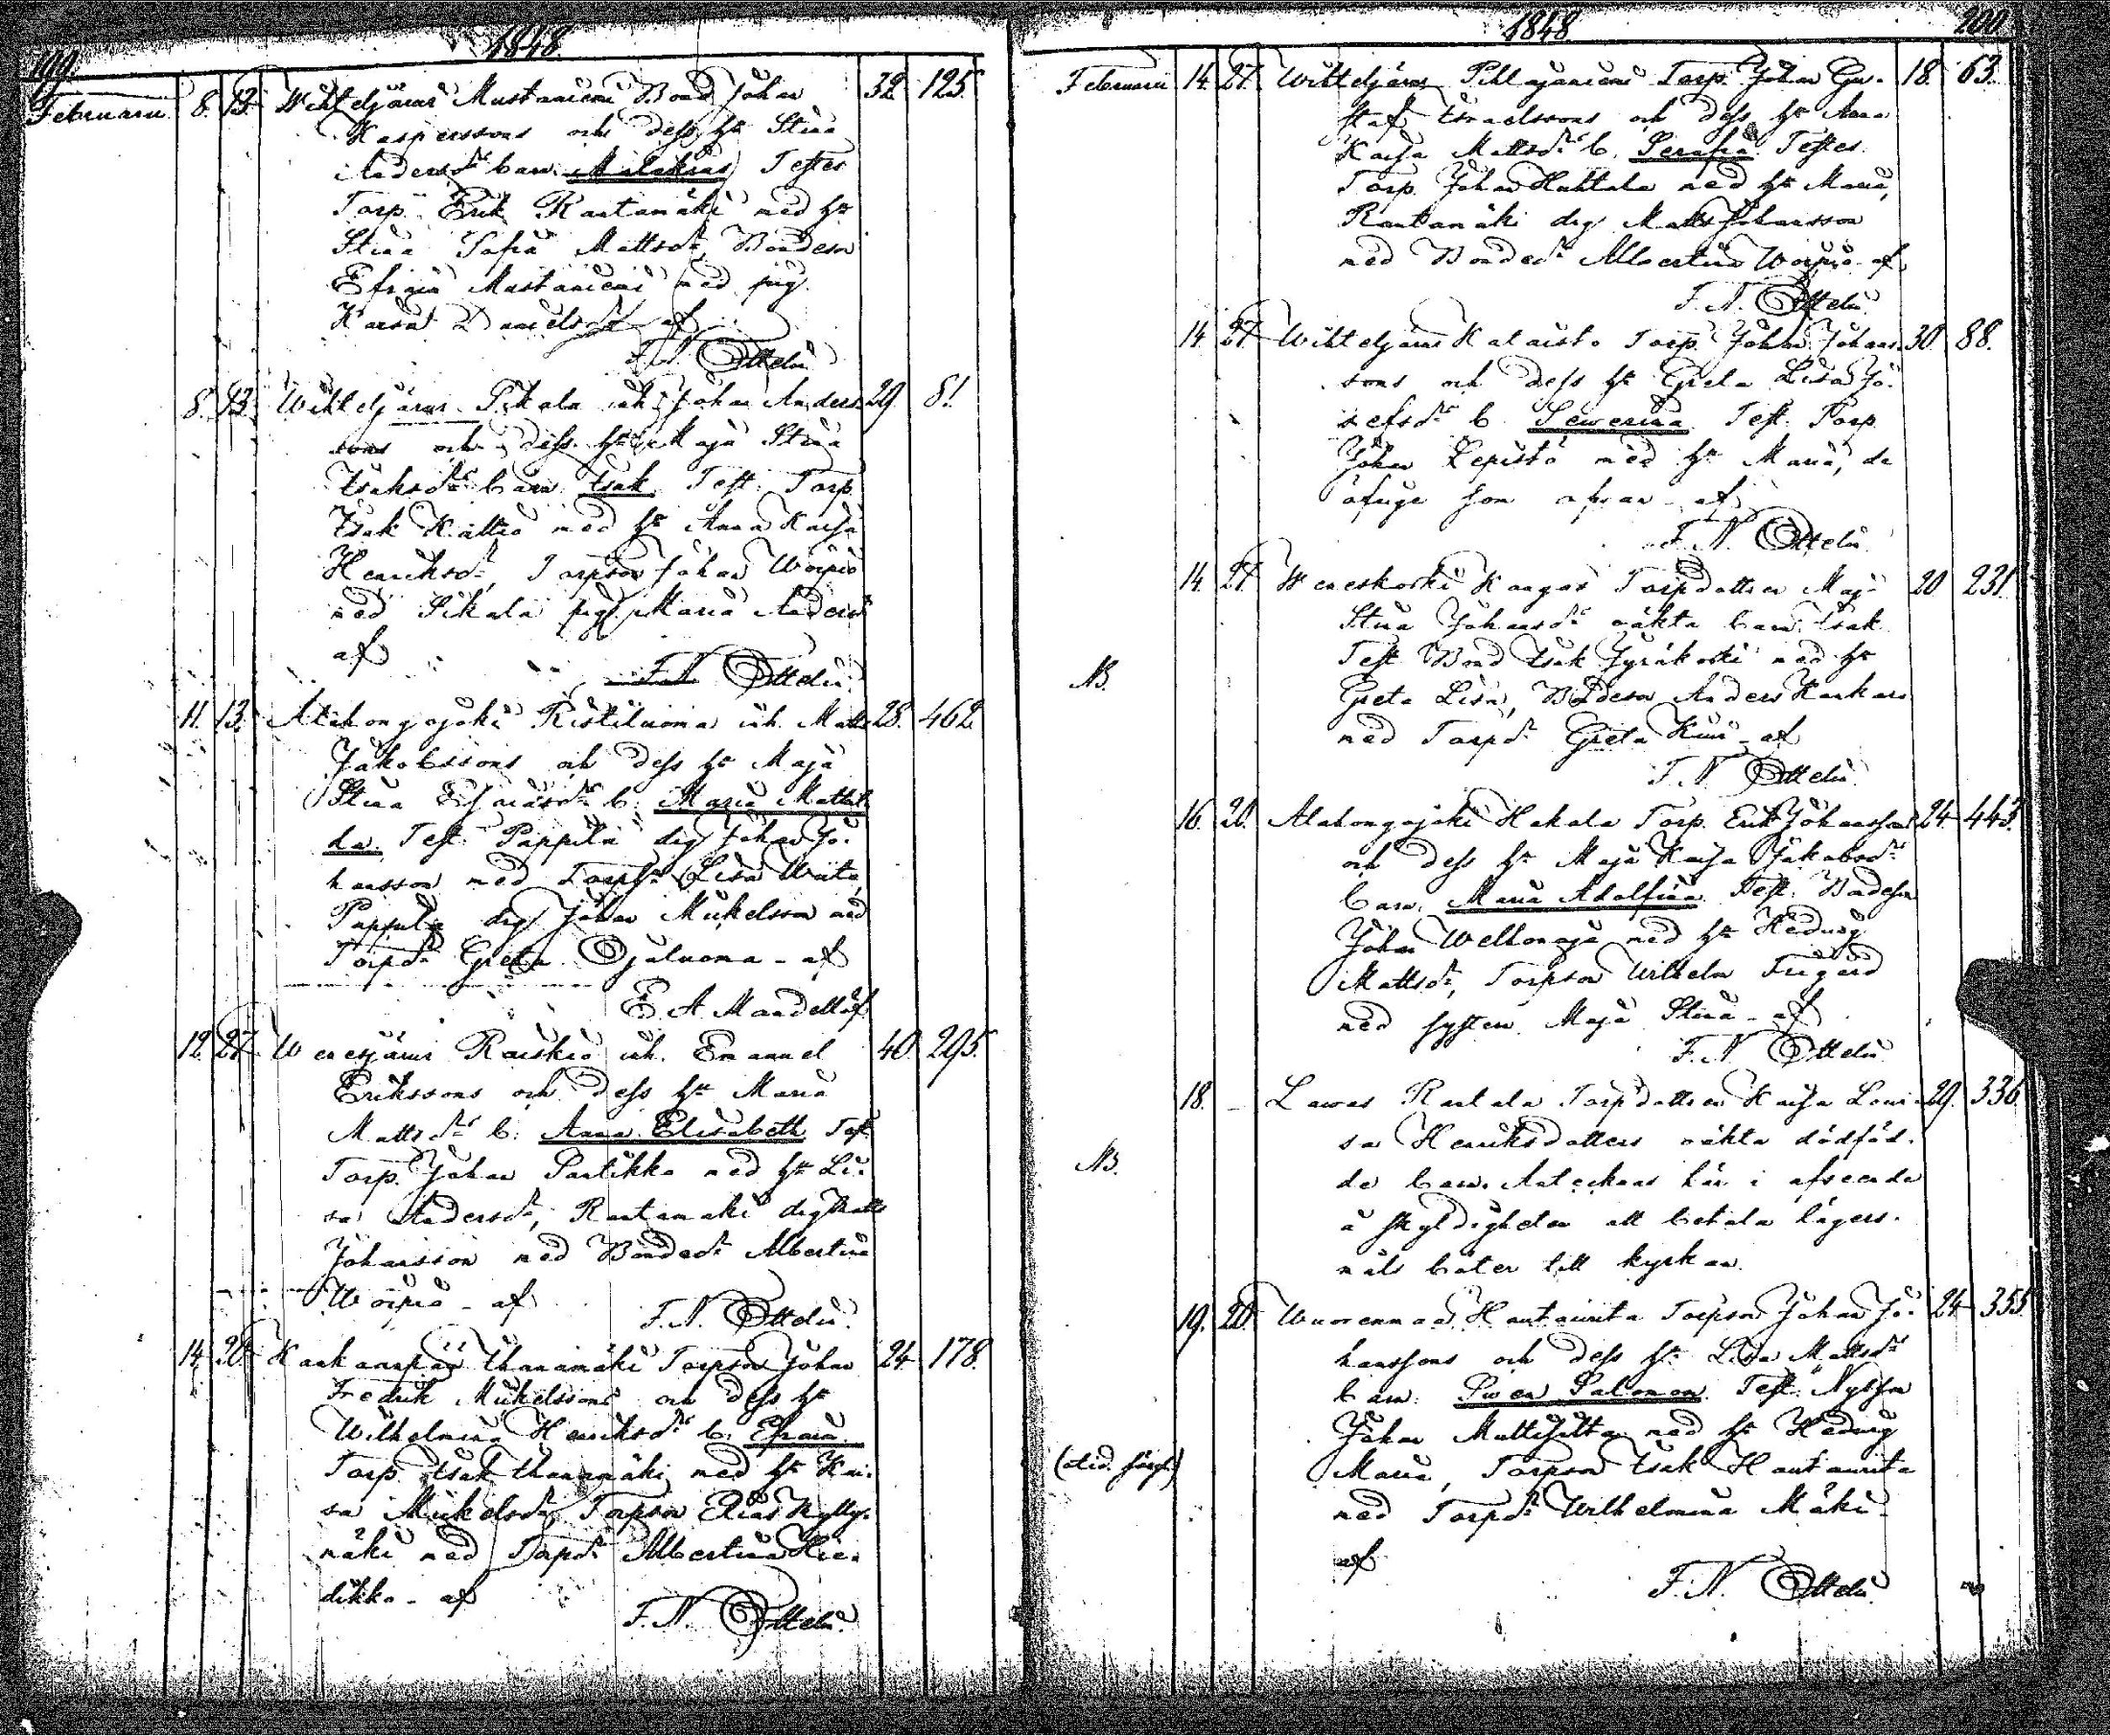 199.
1848
Februarii 8. 13. Wihteljärwi Mustaniemi Bond. Johan 32 125.
Kasperssons och dess hu Stina
Andersdr barn Malakias Testes
Torp. Erik Rantamäki med hu
Stina Sofia Mattsdr, Bondeson
Efraim Mustaniemi med pig.
Danielsdr af
F. N. Ottelin
8. 13. Wihteljärwi Pikala inh. Johan Anders- 29. 81
sons och dess hu Maja Stina
Isaksdrs barn Isak Test. Torp.
Isak Kattio med hu Anna Kaisa
Henriksdr, Torpson Johan Woipio
med Pikala pig. Maria Andersdr
af
F. N. Ottelin
11. 13. Alahongojoki Ristiluoma inh. Matts 28. 462.
Jakobssons och dess hu Maja
Stina Efraimsdrs b. Maria Mathil-
da. Test. Pappila dlg Johan Jo-
hansson med Torphu Lisa Wiita,
Pappila dlg Johan Mickelsson med
Torpdr Greta Ojaluoma - af
E. A. Mandellöf
12. 27. Weresjärwi Raiskio inh. Emanuel 40. 295.
Erikssons och dess hu Maria
Mattsdrs b. Anna Elisabeth Test.
Torp. Johan Partikka med hu Li-
sa Andersdr, Rantamäki dlg Matts
Johansson med Bondedr Albertina
Woipio - af
F. N. Ottelin
14. 20. Kankaanpää Ihanamäki Torpson Johan 24 178.
Fredrik Mickelssons och dess hu
Wilhelmina Henriksdrs b. Efraim.
Torp. Isak Ihanamäki med hu Kai-
sa Mickelsdr, Torpson Elias Kylly-
mäki med Torpdr Albertina Hie-
dikko - af
F. N. Ottelin
1848.
200.
Februarii 14. 27. Wihteljärwi Pihlajaniemi Torp. Johan Gu- 18. 63.
staf Israelssons och dess hu Anna
Kaisa Mattsdrs b. Serafia Testes.
Torp. Johan Huhtala med hu Maria,
Rantamäki dlg Matts Johansson
med Bondedr Albertina Woipio - af
F. N. Ottelin
14. 27. Wihteljärwi Kalaisto Torp. Johan Johans- 30. 88.
sons och dess hu Greta Lisa Jo-
sefsdrs b. Sewerina Test. Torp.
Johan Lepistö med hu Maria, de
öfrige som ofvan - af
F. N. Ottelin
14. 27. Weneskoski Kangas Torpdottren Maja 20 231.
Stina Johansdrs oäkta barn Isak
Test. Bond. Isak Jyräkoski med hu
NB.
Greta Lisa, Bondeson Anders Kankare
med Torpdr Greta Kiwi - af
F. N. Ottelin
16. 20. Alahongojoki Hakala Torp. Erik Johanssons 24 443.
och dess hu Maja Kaisa Jakobsdrs
barn Maria Adolfina Test. Bondeson
Johan Welhonoja med hu Hedwig
Mattsdr, Torpson Wilhelm Trygård
med systern Maja Stina - af
F. N. Ottelin
18. – Lawas Rautala Torpdottren Kaisa Loui- 29. 336.
sa Henriksdotters oäkta dödföd-
NB.
da barn. Antecknas här i afseende
å skyldigheten att betala lägers-
måls böter till kyrkan.
19. 20. Wuorenmaa Hautaniita Torpson Johan Jo- 24 355
hanssons och dess hu Lisa Mattsdrs
barn Swen Salomon Test. Nybson
Johan Mattihitta med hu Hedwig
Maria, Torpson Isak Hautaniita
med Torpdr Wilhelmina Mäki -
af
F. N. Ottelin